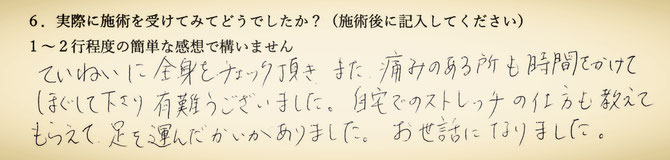 ６．実際に施術を受けてみてどうでしたか？（施術後に記入してください）
１～２行程度の簡単な感想で構いません
ていねいに全身をチェック頂き また、痛みのある所も時間をかけて
ほぐして下さり 有難うございました。自宅でのストレッチの仕方も教えて
もらえて、足を運んだかいがありました。 お世話になりました。